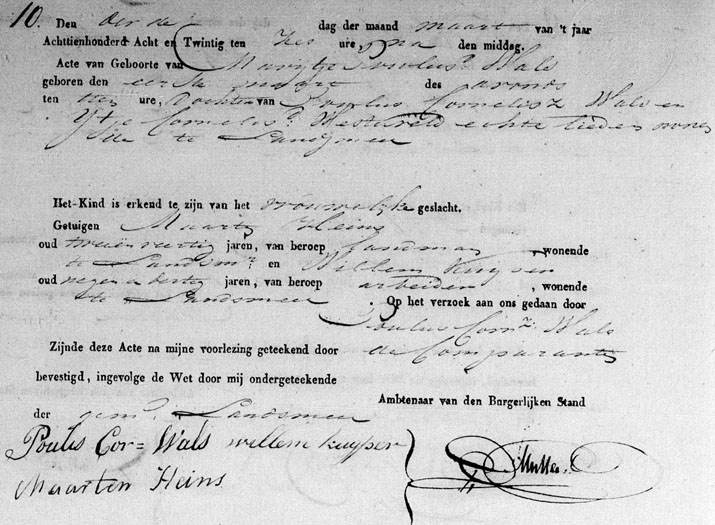 10. Den derde dag der maand maart van 't jaar
Achttienhonderd Acht en Twintig ten zes ure, na den middag.
Acte van Geboorte van Marijtje Poulus Wals
geboren den eerste maart des avonds
ten tien ure, dochter van Poulus Cornelisz Wals en
Cornelis echte lieden wonen
de te Landsmeer
Het Kind is erkend te zijn van het vrouwelijke geslacht.
Getuigen Maarten Heins
oud jaren, van beroep landman, wonende
te Landsmr en Willem Kuyper
oud negen dertig jaren, van beroep arbeider, wonende
te Landsmeer. Op het verzoek aan ons gedaan door
Poulus Corn Wals
Zijnde deze Acte na mijne voorlezing geteekend door de Comparanten
bevestigd, ingevolge de Wet door mij ondergeteekende
Ambtenaar van den Burgerlijken Stand
der gem. Landsmeer
Poulus Cor= Wals willem kuyper
Maarten Heins